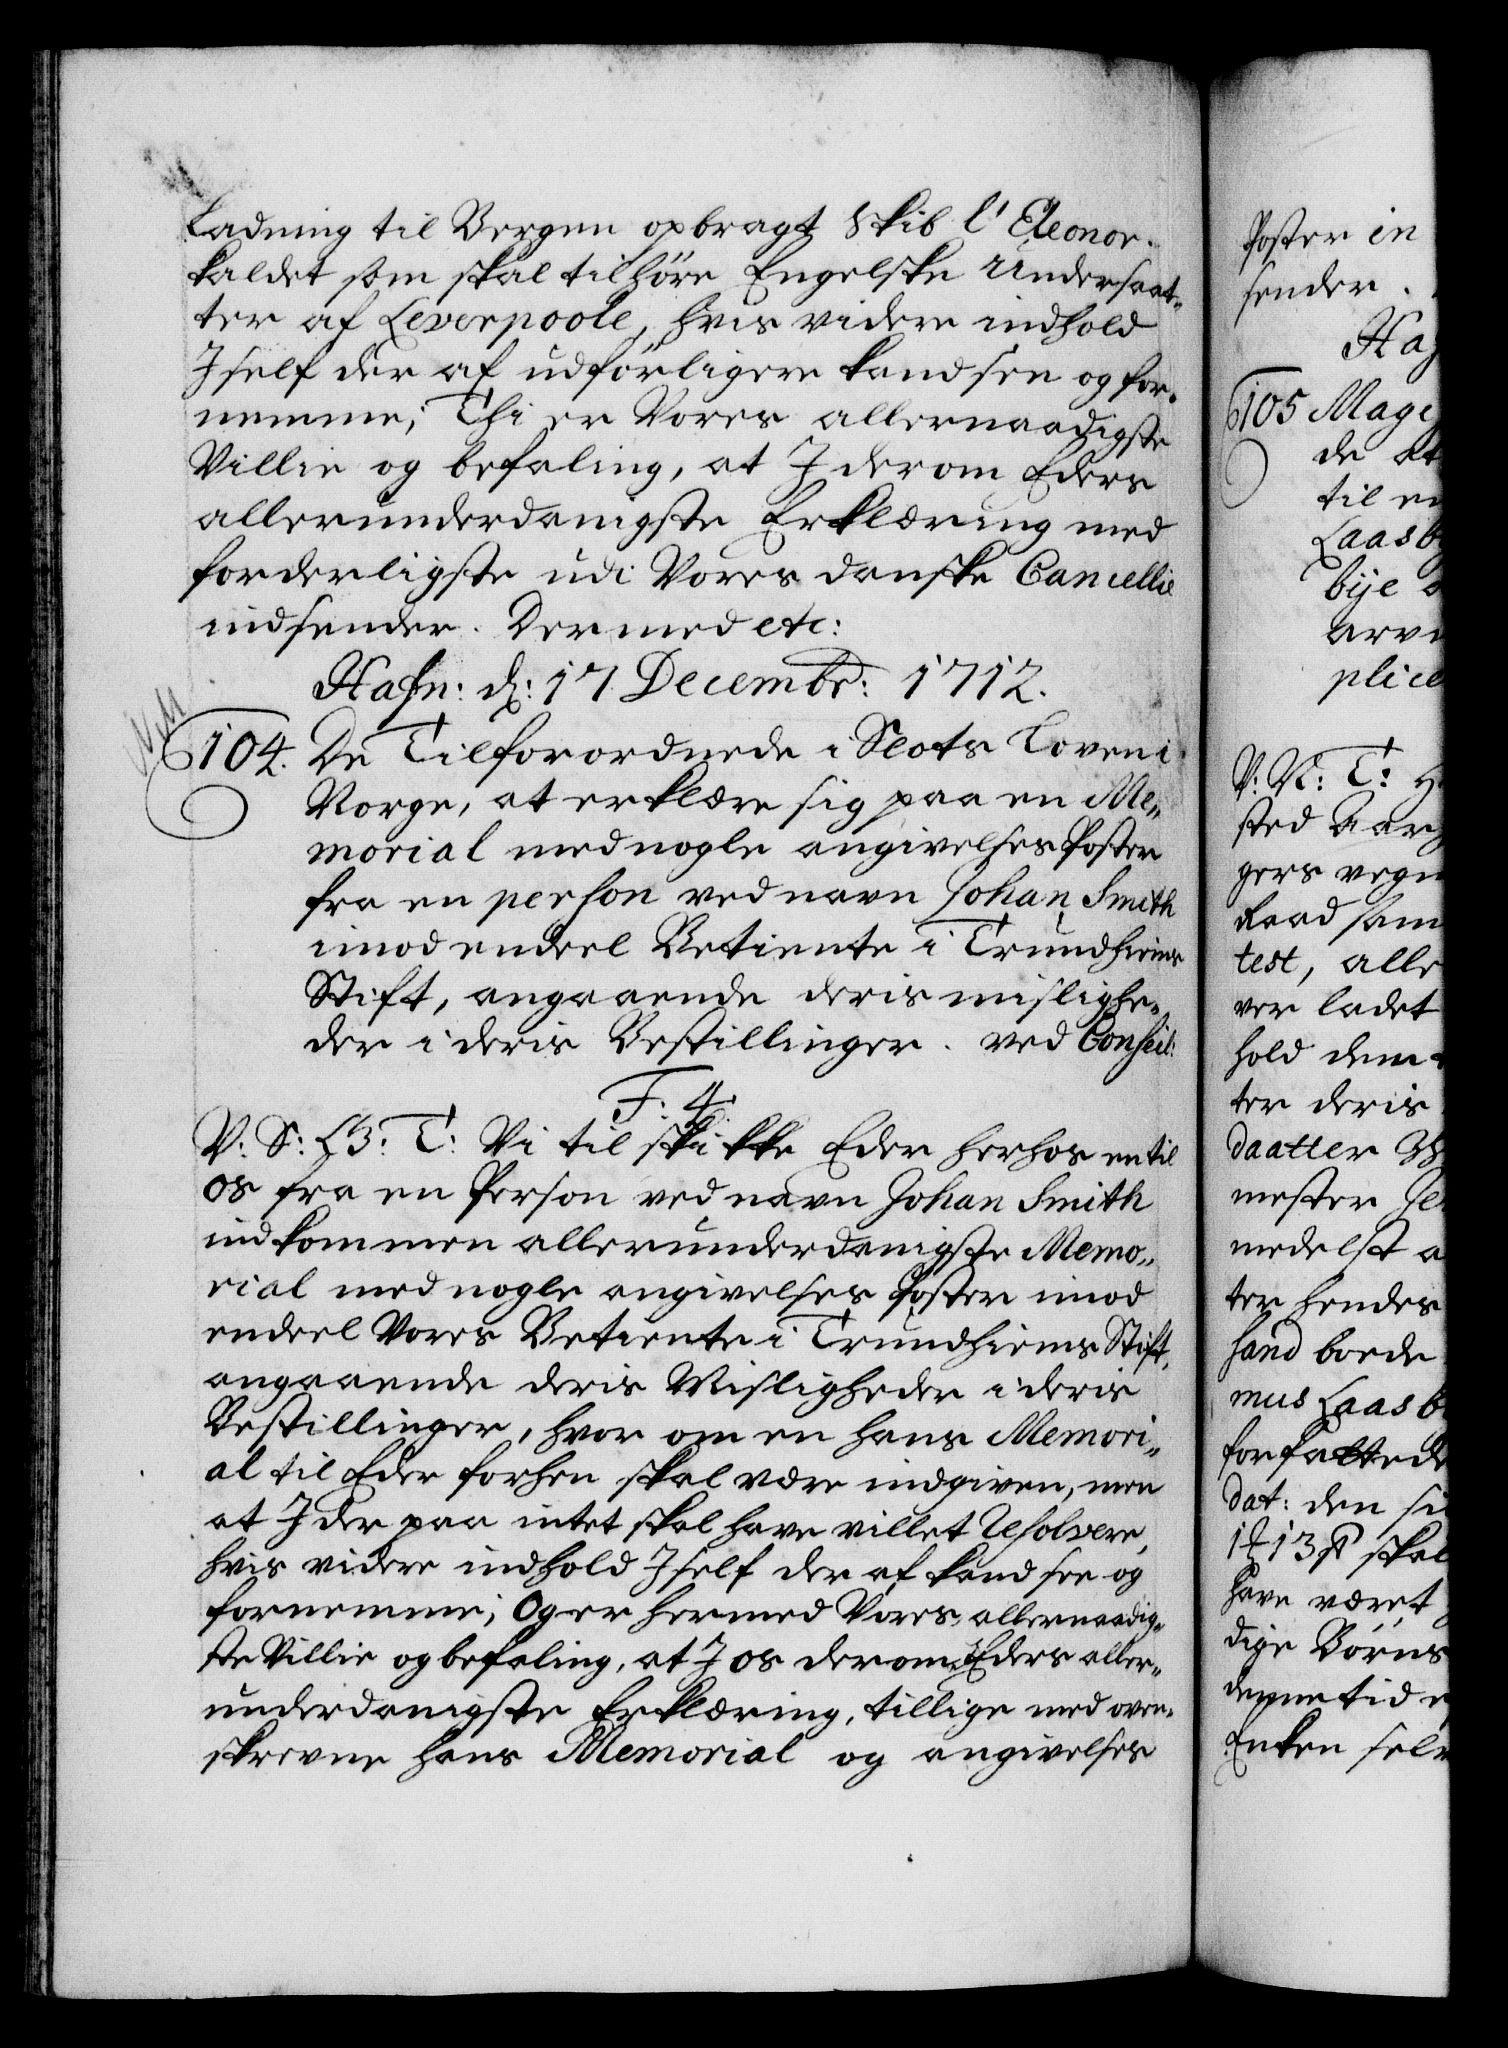 Ladning til Bergen opbragt Skib l'Eleonor
kaldet som skal tilhöre Engelske Undersaat-
ter af Leverpoole, hvis videre indhold
I self der af udförligere kand see og for-
nemme; Thi er Vores allernaadigste
Villie og befaling, at I derom Eders
allerunderdanigste Erklæring med
forderligste udi Vores danske Cancellie
indsender. Dermed etc:
Hafn: d: 17 Decembr: 1712.
104. De Tilforordnede i Slots Loven i
Norge, at erklære sig paa en Me-
morial med nogle angivelses Poster
fra en person ved navn Johan Smith
imod endeel Betiente i Trundhiems
Stift, angaaende deris mislighe-
der i deris Bestillinger. ved Conseil:
F: 4.
V: S: L B: T: Vi tilskikke Eder herhos en til
os fra en Person ved navn Johan Smith
indkommen allerunderdanigste Memo-
rial med nogle angivelses Poster imod
endeel Vores Betiente i Trundhiems Stift,
angaaende deris Misligheder i deris
Bestillinger, hvor om en hans Memori-
al til Eder forhen skal være indgiven, men
at I der paa intet skal have villet Resolvere,
hvis videre indhold I self der af kand see og
fornemme; Og er hermed Vores allernaadig-
ste Villie og befaling, at I os derom Eders aller-
underdanigste Erklæring, tillige med oven-
skrevne hans Memorial og angivelses
Poster in
sender.
Ha
105 Mag
de
til
Laasb
bije
arv
plice
V: N: T:
sted Aar
gers vegn
Raad sam
test, alle
ver ladet
hold dem
ter deris
daatter
mester Je
medelst a
ter hendes
hand boede
mus Laasb
forfattede
dat: den
skal
have været
dige Börns
denne tid
Enken selv